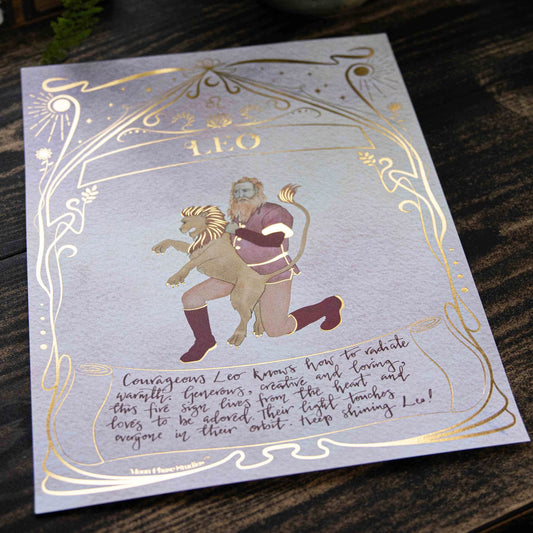 LEO
Courageous Leo knows how to radiate
warmth. Generous, creative and loving,
this fire sign lives from the heart and
loves to be adored. Their light touches
everyone in their orbit. Keep shining Leo!